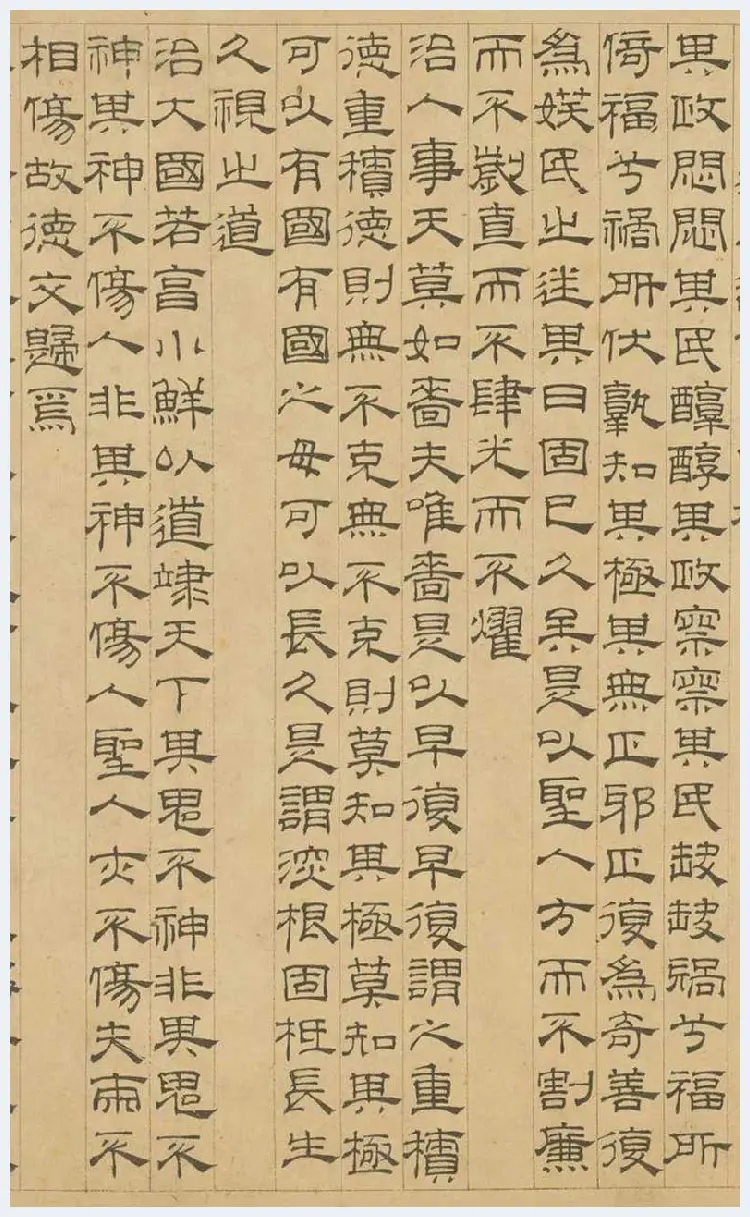 其政悶悶其民醇醇其政察察其民缺缺禍兮福所
倚福兮禍所伏孰知其極其無正邪正復為奇善復
為妖民之迷其日固已久矣是以聖人方而不割廉
而不劌直而不肆光而不燿
治人事天莫如嗇夫唯嗇是以早復早復謂之重積
德重積德則無不克無不克則莫知其極莫知其極
可以有國有國之母可以長久是謂深根固柢長生
久視之道
治大國若亨小鮮以道蒞天下其鬼不神非其鬼不
神其神不傷人非其神不傷人聖人亦不傷夫兩不
相傷故德交歸焉